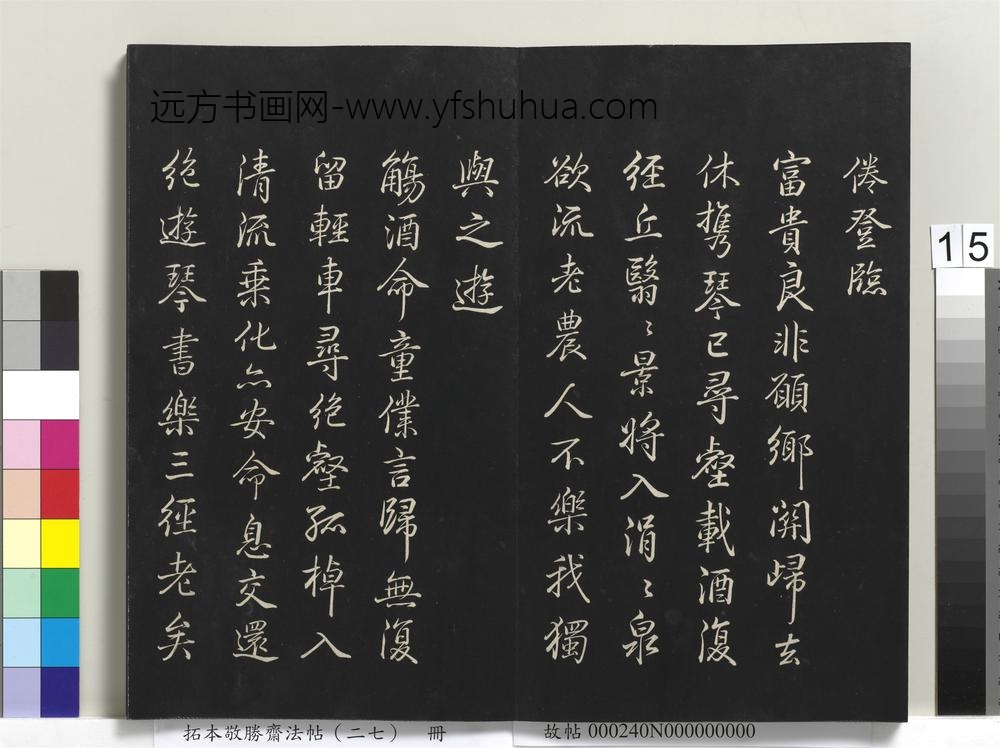 远方书画网-www.yfshuhua.com
倦登臨
富貴良非願鄉関歸去
休携琴已尋壑載酒復
徑丘翳〻景将入涓〻泉
欲流老農人不樂我獨
與之遊
觴酒命童僕言歸無復
留輕車尋絶壑孤棹入
清流乗化亦安命息交還
絶遊琴書樂三徑老矣
15
拓本敬勝齋法帖（二七） 冊
故帖 000240N000000000